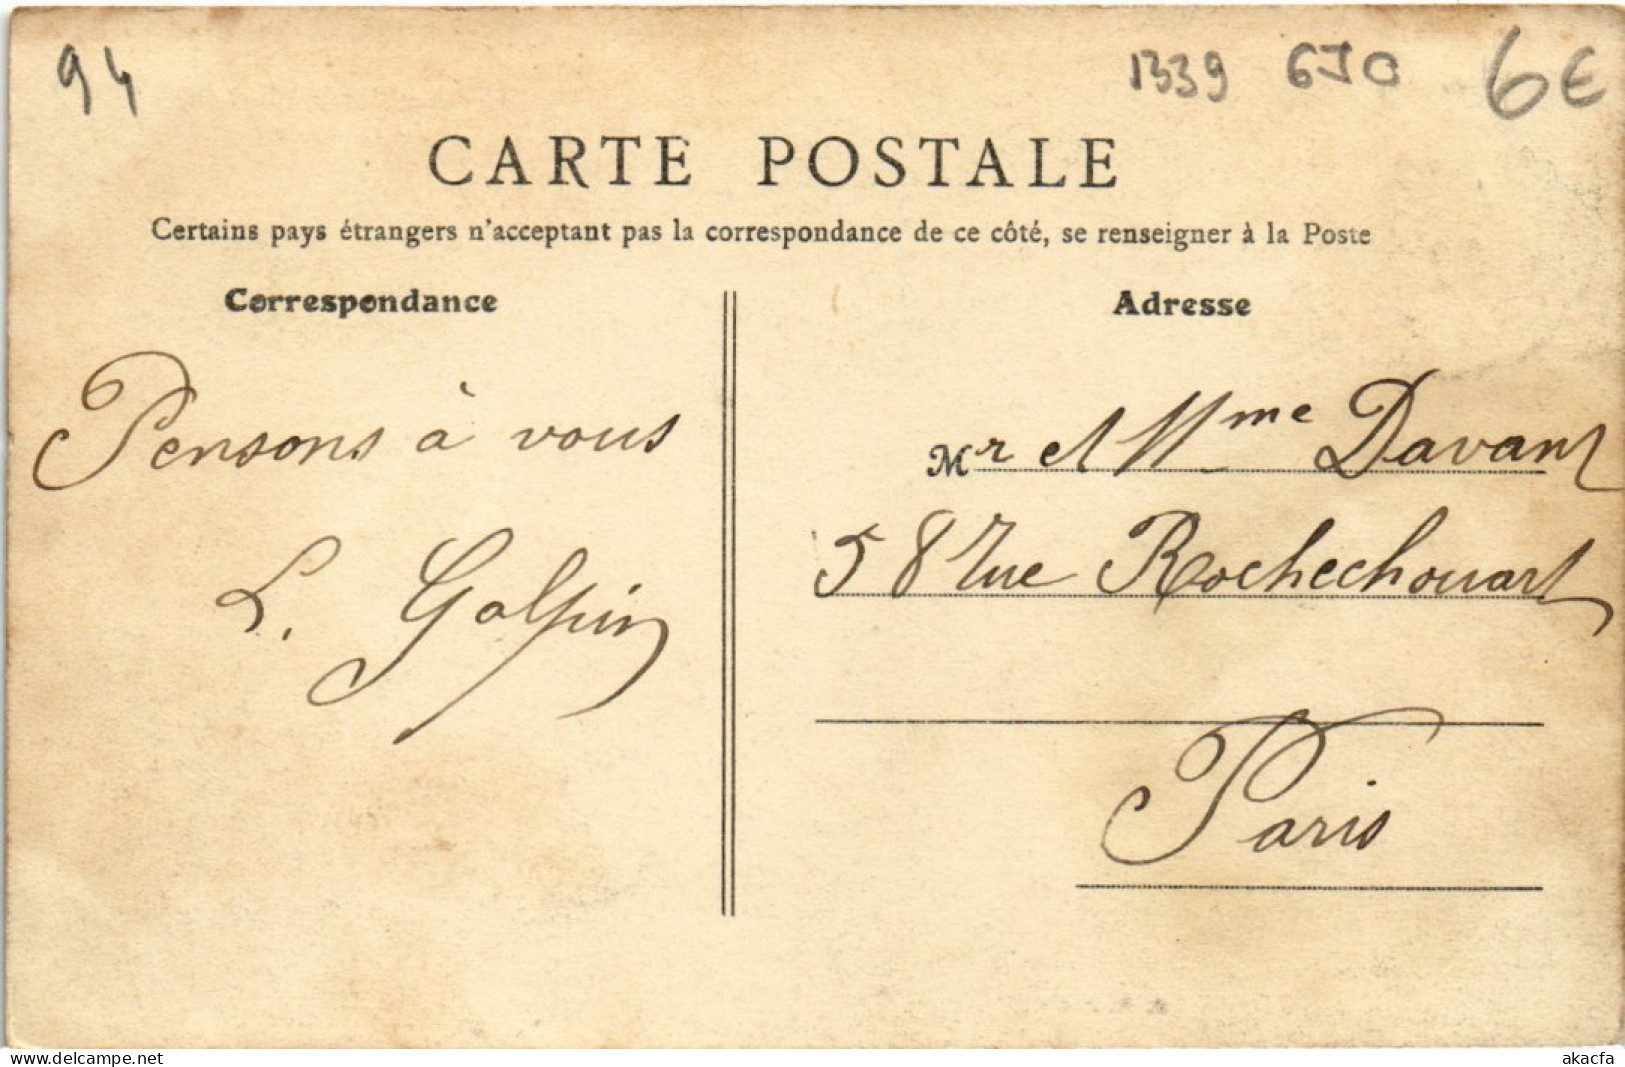 94
1339 6JO 6€
CARTE POSTALE
Certains pays étrangers n'acceptant pas la correspondance de ce côté, se renseigner à la Poste
Correspondance
Pensons à vous
L. Galpin
Adresse
Mr et Mme Davant
58 rue Rochechouart
Paris
www.delcampe.net
akacfa